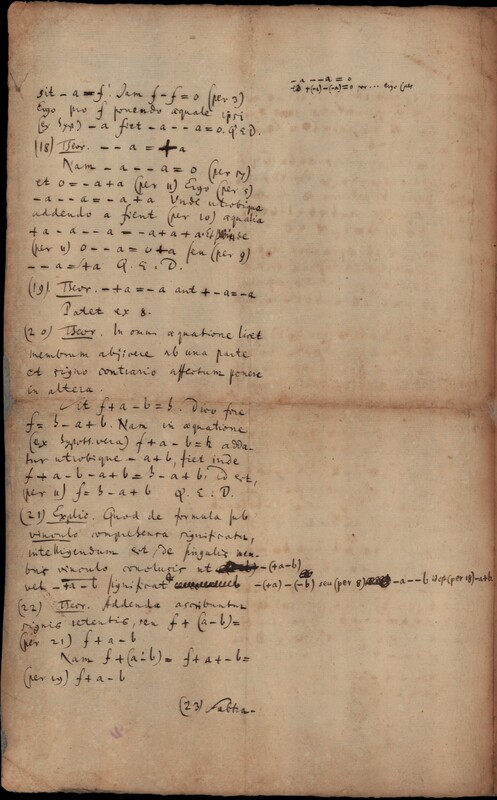 - a - - a = 0
+(-a) - (-a) = 0 Ergo (per
sit - a = f. Jam f - f = 0 (per 3)
Ergo pro f ponendo æquale ipsi
(ex hyp) - a fiet - a - - a = 0. Q. E. D.
(18) Theor. - - a = + a
Nam - a - - a = 0 (per 17)
et 0 = - a + a (per 11) Ergo (per 5)
- a - - a = - a + a Unde utrobique
addendo a fient (per 10) æqualia
+ a - a - - a = - a + a + a. Et proinde
(per 11) 0 - - a = 0 + a seu (per 9)
- - a = + a Q. E. D.
(19) Theor. - + a = - a aut + - a = - a
Patet ex 8.
(20) Theor. In omni æquatione licet
membrum abjicere ab una parte
et signo contrario affectum ponere
in altera.
Sit f + a - b = h. Dico fore
f = h - a + b. Nam in æquatione
(ex hypoth. vera) f + a - b = h adda-
tur utrobique - a + b, fiet inde
f + a - b - a + b = h - a + b, id est,
(per 11) f = h - a + b Q. E. D.
(21) Explic. Quod de formula sub
vinculo comprehensa significatur,
intelligendum est de singulis mem-
bris vinculo conclusis ut - (+a-b)
vel - +a-b significat - (+a) - (-b) seu (per 8) - a - - b, id est (per 18) - a + b
(22) Theor. Addenda ascribuntur
signis retentis, seu f + (a - b) =
(per 21) f + a - b
Nam f + (a - b) = f + a + - b =
(per 19) f + a - b
(23) Subtra-